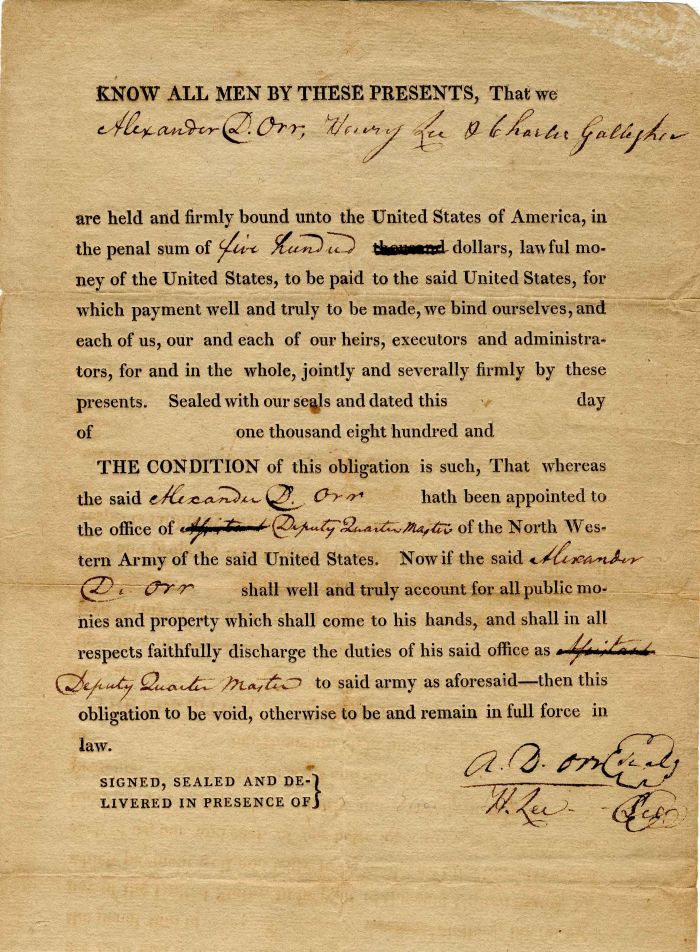 KNOW ALL MEN BY THESE PRESENTS, That we
Alexander D. Orr, Henry Lee & Charles Gallagher
are held and firmly bound unto the United States of America, in
the penal sum of five hundred thousand dollars, lawful mo-
ney of the United States, to be paid to the said United States, for
which payment well and truly to be made, we bind ourselves, and
each of us, our and each of our heirs, executors and administra-
tors, for and in the whole, jointly and severally firmly by these
presents. Sealed with our seals and dated this day
of one thousand eight hundred and
THE CONDITION of this obligation is such, That whereas
the said Alexander D. Orr hath been appointed to
the office of Assistant Deputy Quarter Master of the North Wes-
tern Army of the said United States. Now if the said Alexander
D. Orr shall well and truly account for all public mo-
nies and property which shall come to his hands, and shall in all
respects faithfully discharge the duties of his said office as Assistant
Deputy Quarter Master to said army as aforesaid—then this
obligation to be void, otherwise to be and remain in full force in
law.
A. D. Orr Seal
SIGNED, SEALED AND DE-
LIVERED IN PRESENCE OF}
H. Lee Seal